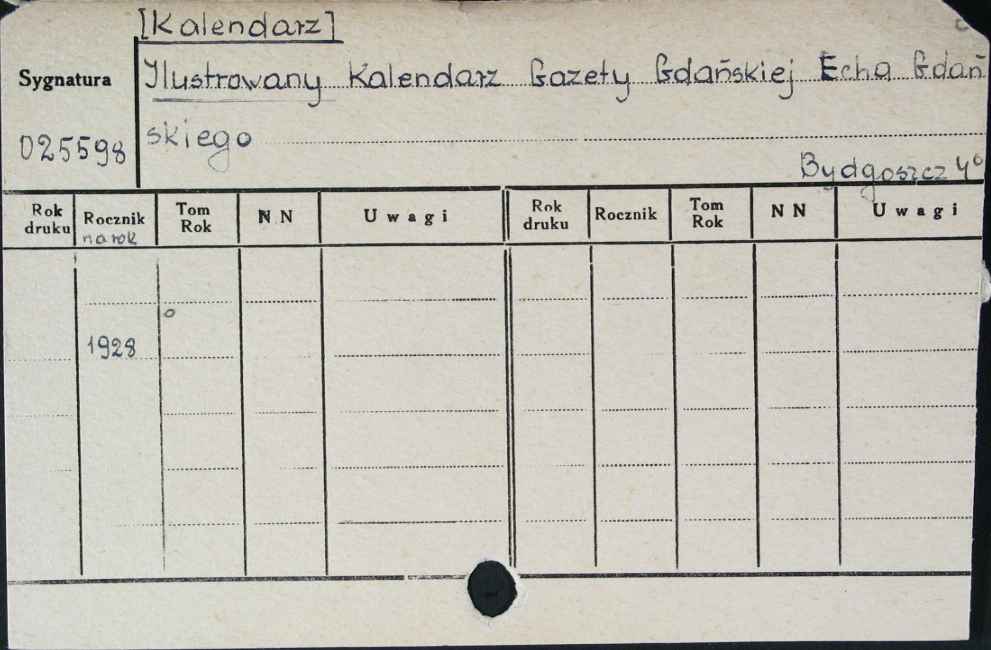 [Kalendarz]
Sygnatura
Ilustrowany Kalendarz Gazety Gdańskiej Echa Gdań
skiego
025598
Bydgoszcz 4°
Rok druku Rocznik na rok Tom Rok NN Uwagi Rok druku Rocznik Tom Rok NN Uwagi
1928